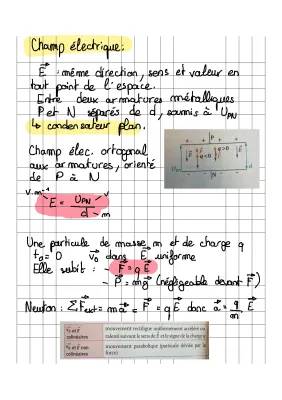 Champ électrique:
E⃗ : même direction, sens et valeur en
tout point de l'espace.
Entre deux armatures métalliques
P et N séparés de d, soumis à U_PN
↳ condensateur plan.
Champ élec. ortogonal
aux armatures, orienté
de P à N
V.m⁻¹ V
E = U_PN / d
m
Une particule de masse m et de charge q
t₀ = 0 v⃗₀ dans E⃗ uniforme
Elle subit : - F⃗ = q E⃗
- P⃗ = mg⃗ (négligeable devant F⃗)
Newton : ΣF⃗ext = m a⃗ = F⃗ = q E⃗ donc a⃗ = q/m E⃗
v⃗₀ et E⃗ colinéaires
mouvement rectiligne uniformément accéléré ou
ralenti suivant le sens de E⃗ et le signe de la charge
v⃗₀ et E⃗ non colinéaires
mouvement parabolique (particule déviée par la
force)